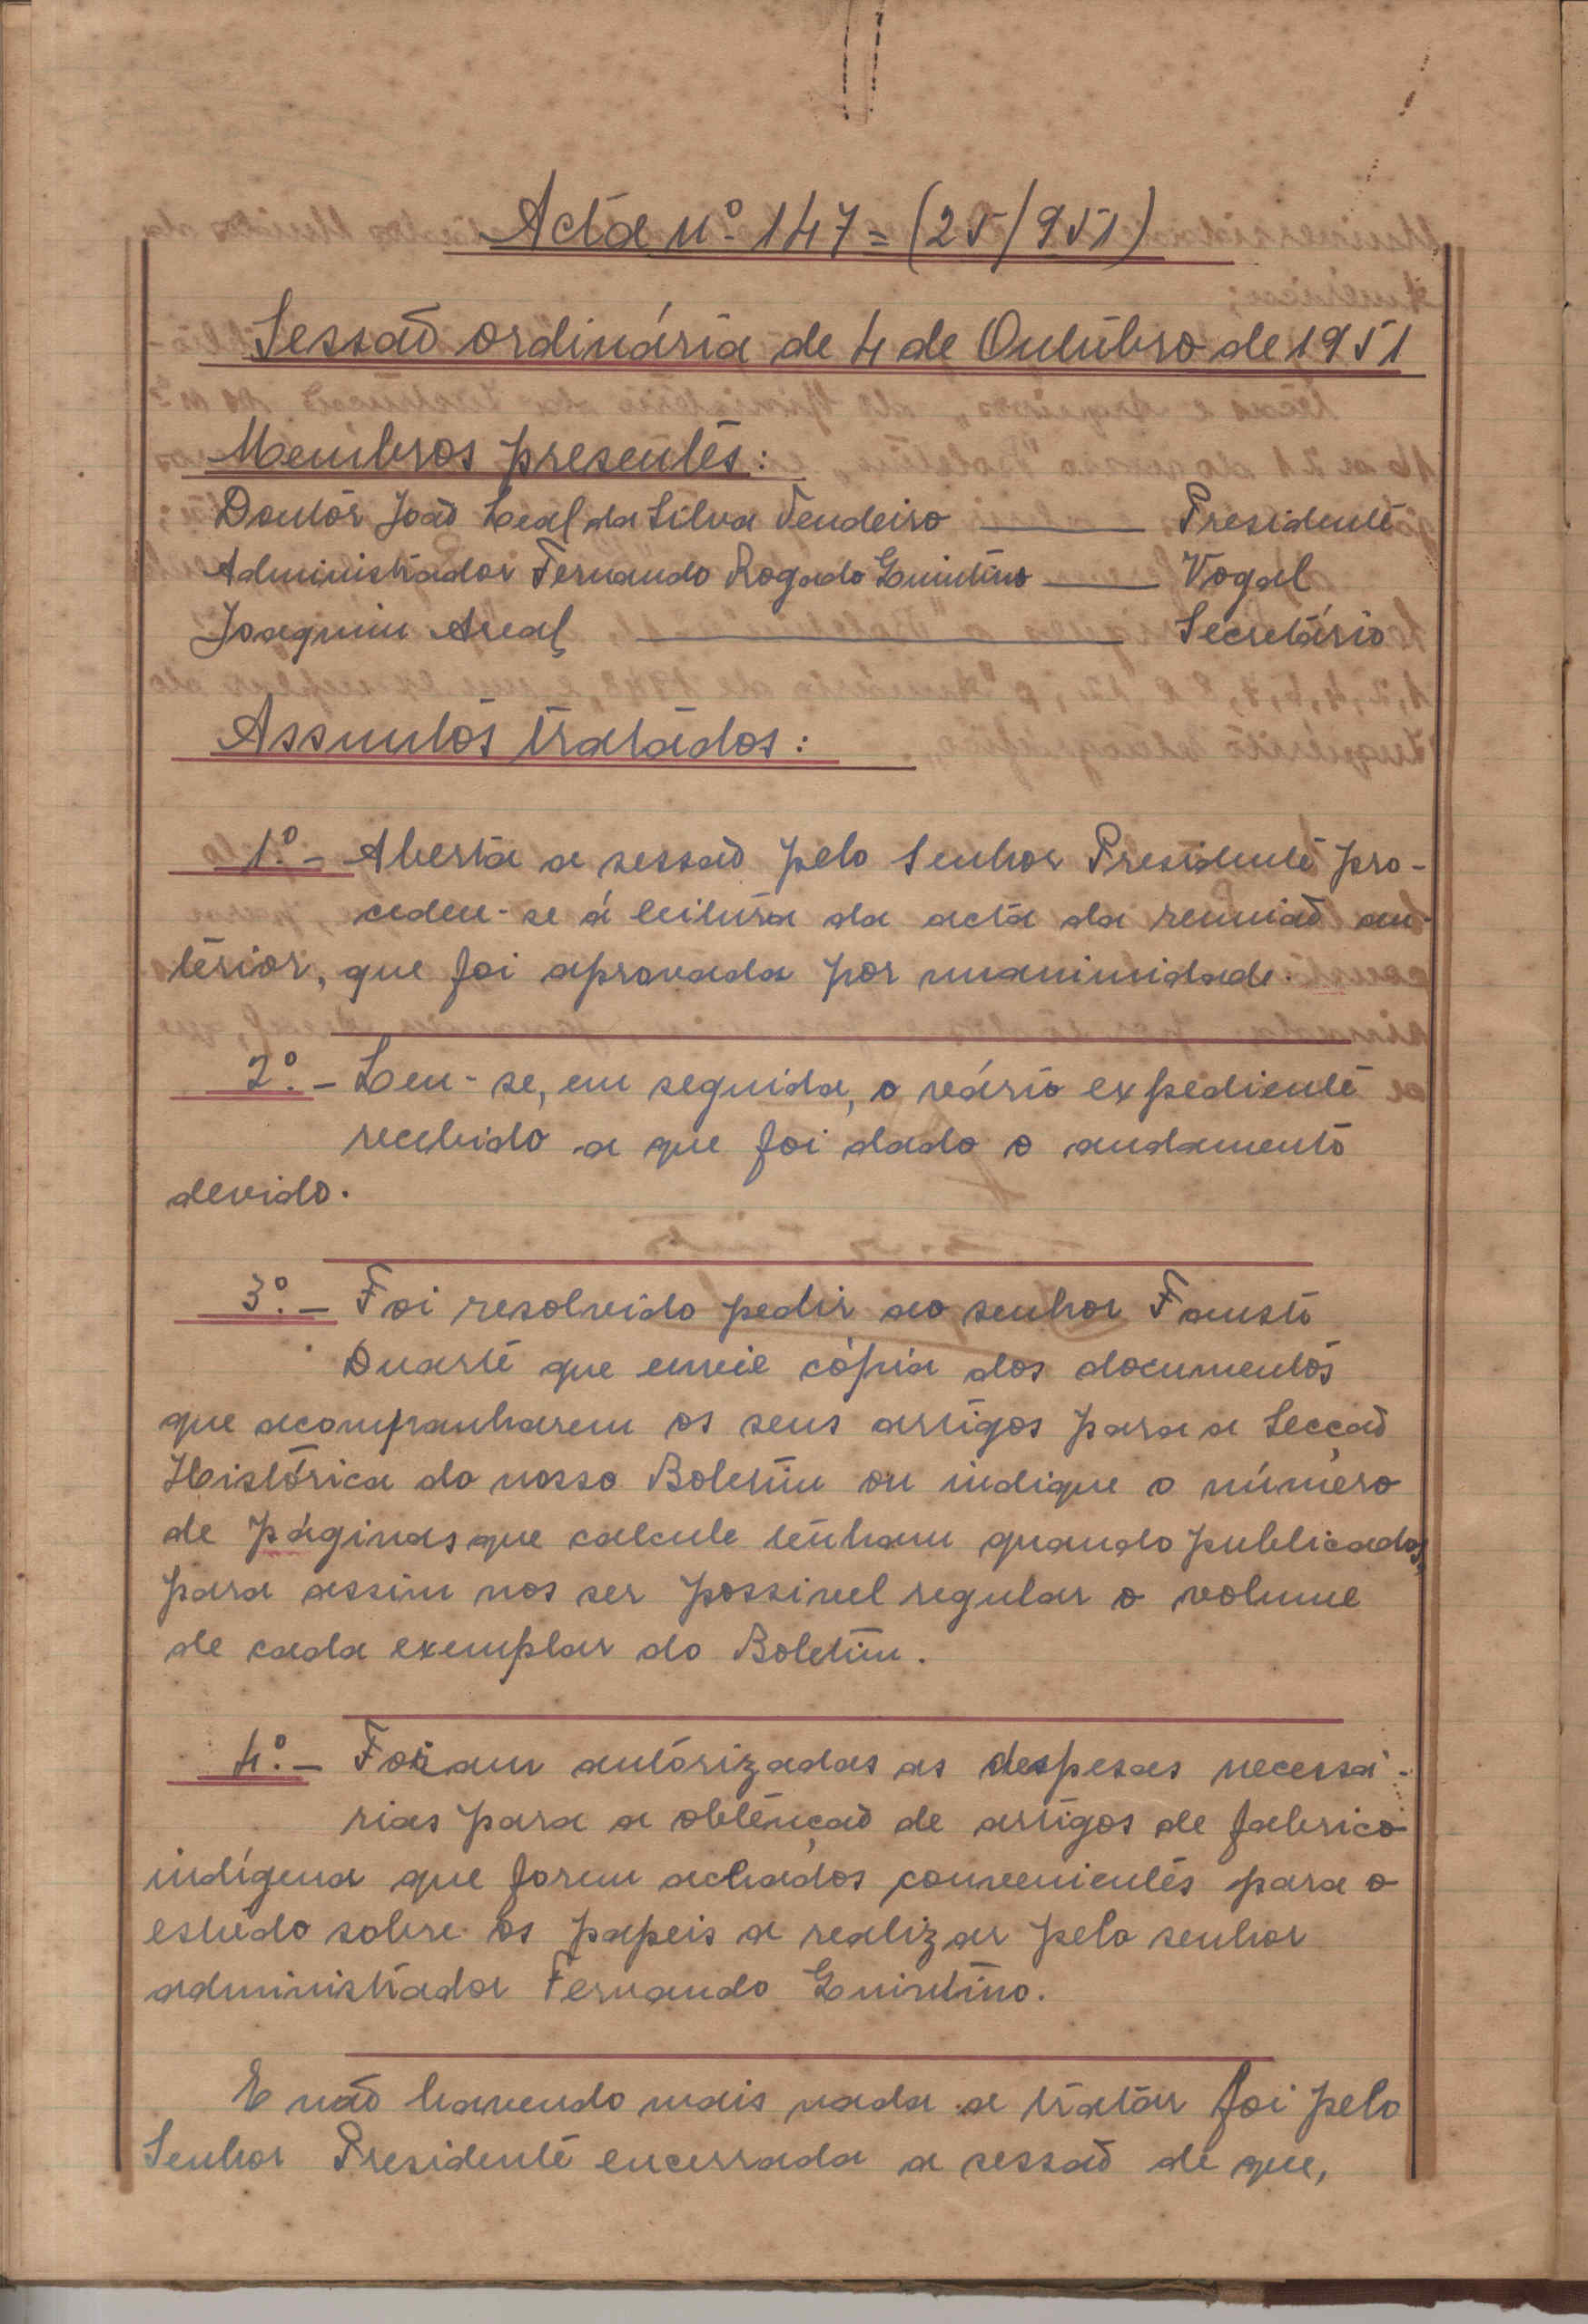 Acta nº 147 = (25/951)
Sessão ordinária de 4 de Outubro de 1951
Membros presentes:
Doutor João Leal da Silva Tendeiro ——— Presidente
Administrador Fernando Rogado Quintino ——— Vogal
Joaquim Areal ——— Secretário
Assuntos tratados:
1º. - Aberta a sessão pelo Senhor Presidente pro-
cedeu-se á leitura da acta da reunião an-
terior, que foi aprovada por unanimidade.
2º. - Leu-se, em seguida, o vário expediente
recebido a que foi dado o andamento
devido.
3º. - Foi resolvido pedir ao senhor Fausto
Duarte que envie cópia dos documentos
que acompanharem os seus artigos para a Secção
Histórica do nosso Boletim ou indique o número
de páginas que calcule tenham quando publicados,
para assim nos ser possivel regular o volume
de cada exemplar do Boletim.
4º. - Foram autorizadas as despesas necessá-
rias para a obtenção de artigos de fabrico
indígena que forem achados convenientes para o
estudo sobre os papeis a realizar pelo senhor
administrador Fernando Quintino.
E não havendo mais nada a tratar foi pelo
Senhor Presidente encerrada a sessão de que,